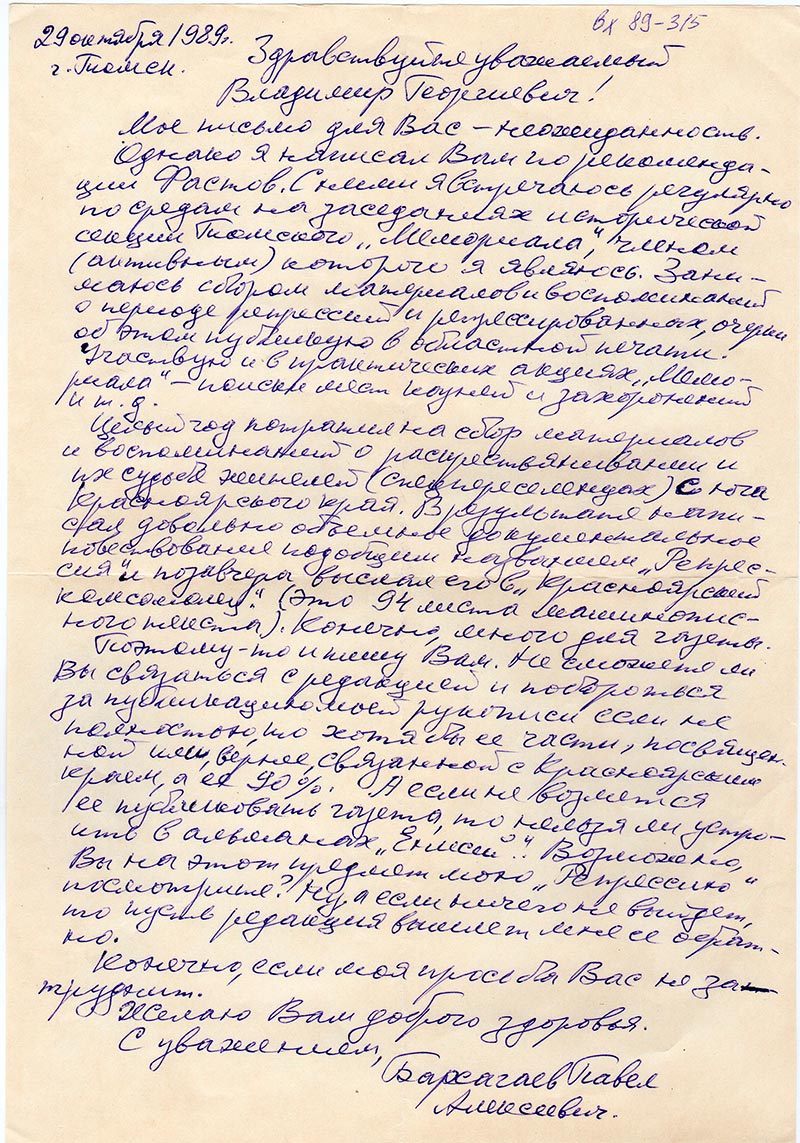 Вх 89-315
29 октября 1989г.
г. Томск.
Здравствуйте уважаемый
Владимир Георгиевич!
Мое письмо для Вас – неожиданность.
Однако я написал Вам по рекоменда-
ции Фастов. С ними я встречаюсь регулярно
по средам на заседаниях исторической
секции Томского „Мемориала", членом
(активным) которого я являюсь. Зани-
маюсь сбором материалов и воспоминаний
о периоде репрессий и репрессированных, очерки
об этом публикую в областной печати.
Участвую и в практических акциях „Мемо-
риала" – поиски мест казней и захоронений
и т.д.
Целый год потратил на сбор материалов
и воспоминаний о раскрестьянивании и
их судьбе жителей (спецпереселенцах) с юга
Красноярского края. В результате напи-
сал довольно объемное документальное
повествование под общим названием „Репрес-
сия" и позавчера выслал его в „Красноярский
комсомолец." (это 94 листа машинопис-
ного текста). Конечно, много для газеты.
Поэтому-то и пишу Вам. Не сможете ли
Вы связаться с редакцией и побороться
за публикацию моей рукописи если не
полностью, то хотя бы ее части, посвящен-
ной или, вернее, связанной с Красноярским
краем, а ее 90%. А если не возмется
ее публиковать газета, то нельзя ли устро-
ить в альманах „Енисей"? Возможно,
Вы на этот предмет мою „Репрессию"
посмотрите? Ну, а если ничего не выйдет,
то пусть редакция вышлет мне ее обрат-
но.
Конечно, если моя просьба Вас не за-
труднит.
Желаю Вам доброго здоровья.
С уважением,
Барсагаев Павел
Алексеевич.